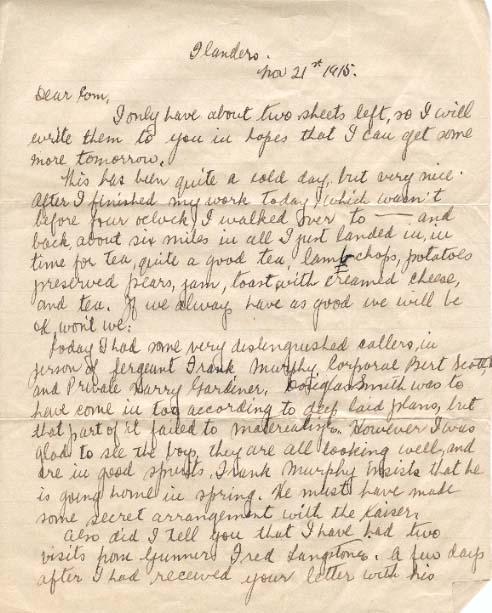 Flanders.
Nov 21st 1915.
Dear Tom,
I only have about two sheets left, so I will
write them to you in hopes that I can get some
more tomorrow.
This has been quite a cold day, but very nice.
After I finished my work today (which wasn't
before four oclock) I walked over to —— and
back, about six miles in all I just landed in, in
time for tea, quite a good tea, lamb chops, potatoes
preserved pears, jam, toast with creamed cheese,
and tea. If we always have as good we will be
ok won't we.
Today I had some very distingrushed callers, in
person of Sergeant Frank Murphy, Corporal Bert Scott,
and Private Harry Gardiner. Douglas Smith was to
have come in too according to deep laid plans, but
that part of it failed to materialize. However I was
glad to see the boys, they are all looking well, and
are in good spirits. Frank Murphy insists that he
is going home in spring. He must have made
some secret arrangement with the Kaiser.
Also did I tell you that I have had two
visits from Gunner Fred Langstone. A few days
after I had received your letter with his